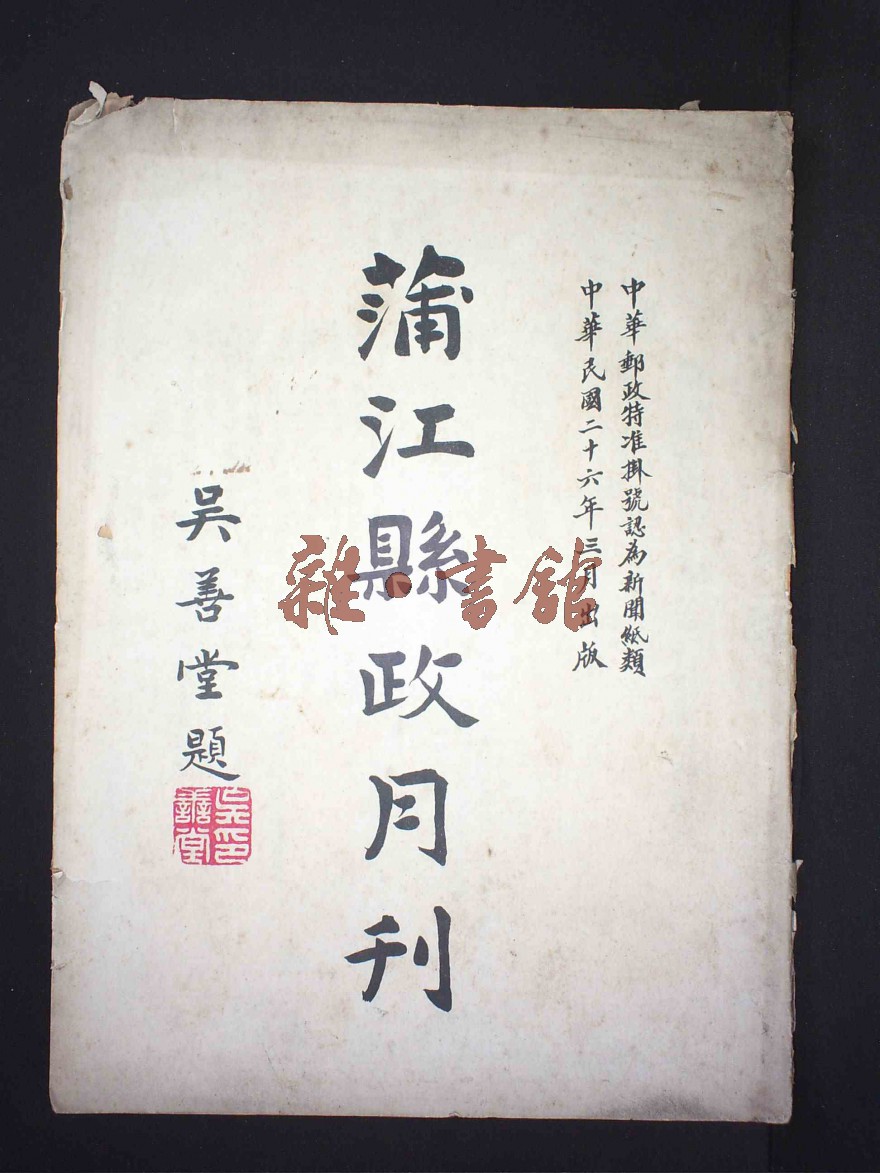 中華郵政特准掛號認為新聞紙類
中華民國二十六年三月出版
蒲江縣政月刊
吳善堂題
吳印善堂
雜·書館